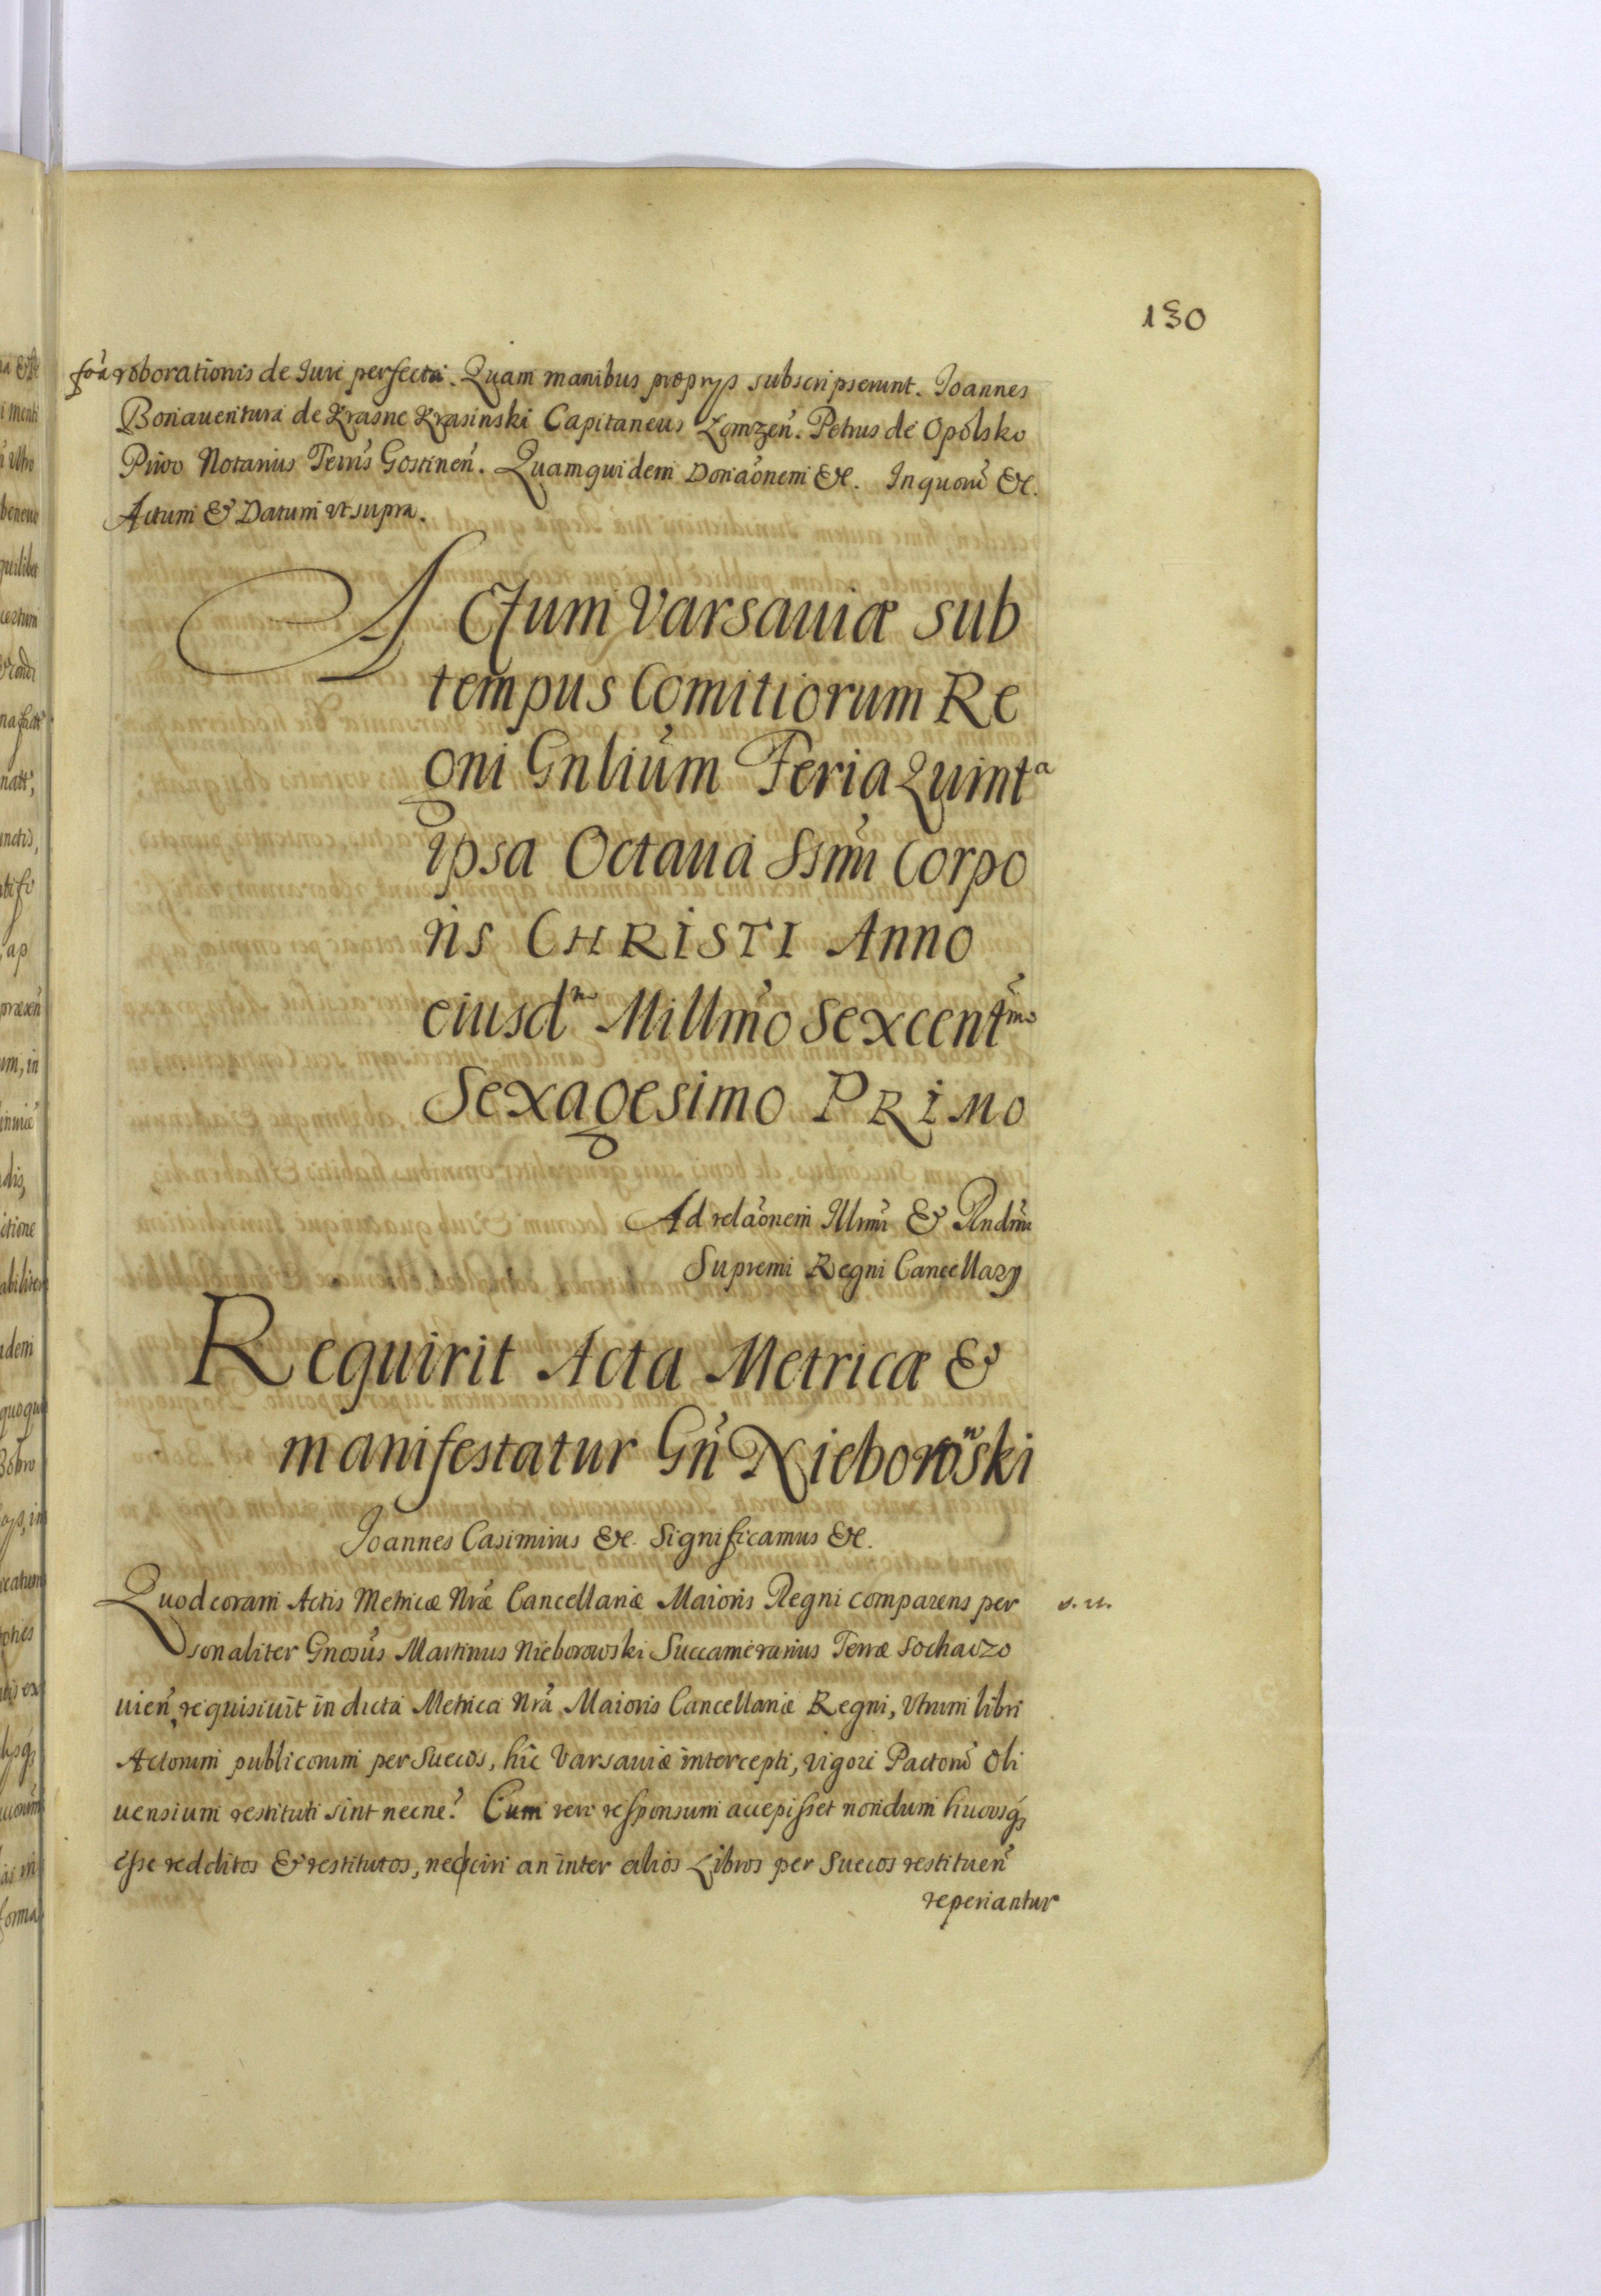 130
foã roborationis de Iure perfecta. Quam manibus proprys subscripserunt. Ioannes
Bonauentura de Krasne Krasinski Capitaneus Łomzen̄. Petrus de Opolsko
Piwo Notarius Terrīs Gostinen̄. Quamquidem Donãonem &c. In quorū &c.
Actum & Datum vt supra.
Actum Varsauiæ sub
tempus Comitiorum Re
gni Gnlium̄ Feria Quintª
ipsa Octaua Ssmī Corpo
ris CHRISTI Anno
eiusdᵐ Millmō Sexcentᵐᵒ
Sexagesimo PRIMO
Ad relãonem Illmī & Rndmī
Supremi Regni Cancellarÿ
Requirit Acta Metricæ &
manifestatur Gn̄ Nieborowski
Ioannes Casimirus &c. Significamus &c.
Quod coram Actis Metricæ Nræ̃ Cancellariæ Maioris Regni comparens per
s. u.
sonaliter Gnosūs Martinus Nieborowski Succamerarius Terræ Sochaczo
uien̄, requisiuit in dicta Metrica Nrã Maioris Cancellariæ Regni, Vtrum libri
Actorum publicorum per Suecos, hic Varsauiæ intercepti, vigore Pactorū Oli
uensium restituti sint necne? Cum vero responsum accepisset nondum hucusq3
esse redditos & restitutos, nec sciri an inter alios Libros per Suecos restituen̄
reperiantur